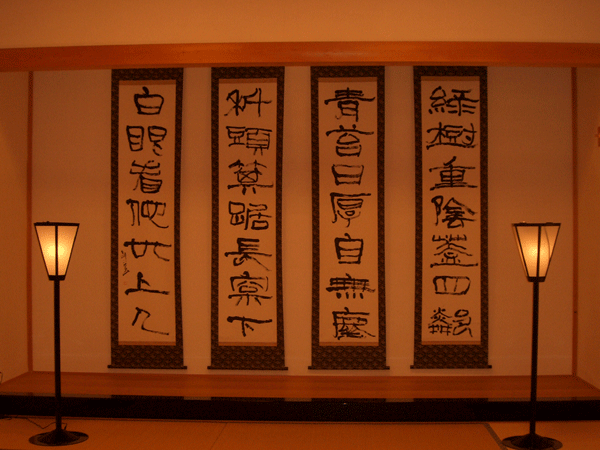 綠樹重陰蓋四鄰
青苔日厚自無塵
科頭箕踞長松下
白眼看他世上人